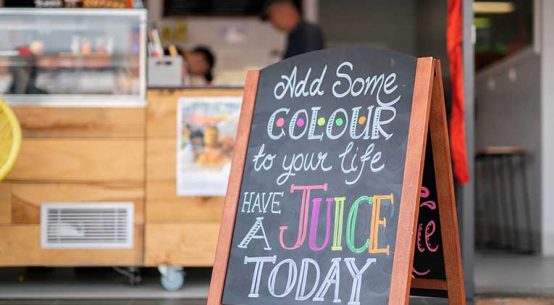 Add Some
COLOUR
to your life
HAVE JUICE
A
TODAY